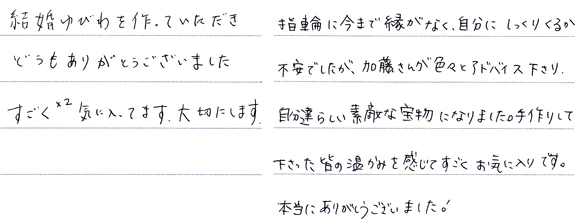 結婚ゆびわを作っていただき
どうもありがとうございました
すごく×2 気に入ってます。大切にします。
指輪に今まで縁がなく、自分にしっくりくるか
不安でしたが、加藤さんが色々とアドバイス下さり、
自分達らしい素敵な宝物になりました。手作りして
下さった皆の温かみを感じてすごくお気に入りです。
本当にありがとうございました！